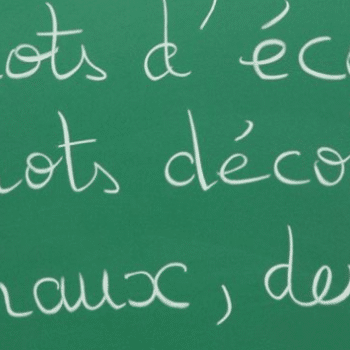 ots d'éc
ots déco
aux, de